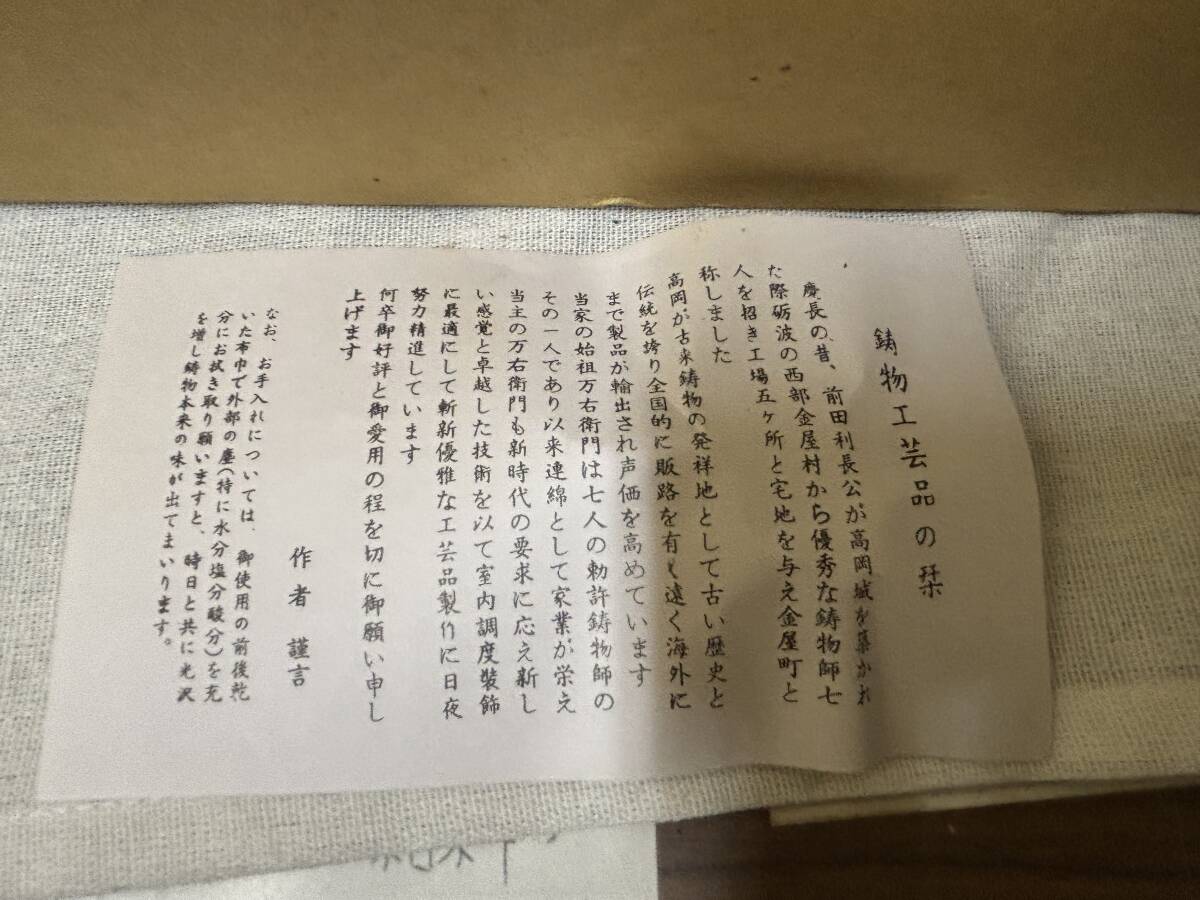 鋳物工芸品の栞
慶長の昔、前田利長公が高岡城を築かれ
た際砺波の西部金屋村から優秀な鋳物師七
人を招き工場五ヶ所と宅地を与え金屋町と
称しました
高岡が古来鋳物の発祥地として古い歴史と
伝統を誇り全国的に販路を有し遠く海外に
まで製品が輸出され声価を高めています
当家の始祖万右衛門は七人の勅許鋳物師の
その一人であり以来連綿として家業が栄え
当主の万右衛門も新時代の要求に応え新し
い感覚と卓越した技術を以て室内調度装飾
に最適にして斬新優雅な工芸品製作に日夜
努力精進しています
何卒御好評と御愛用の程を切に御願い申し
上げます
作者 謹言
なお、お手入れについては、御使用の前後乾
いた布巾で外部の塵(特に水分塩分酸分)を充
分にお拭き取り願いますと、時日と共に光沢
を増し鋳物本来の味が出てまいります。